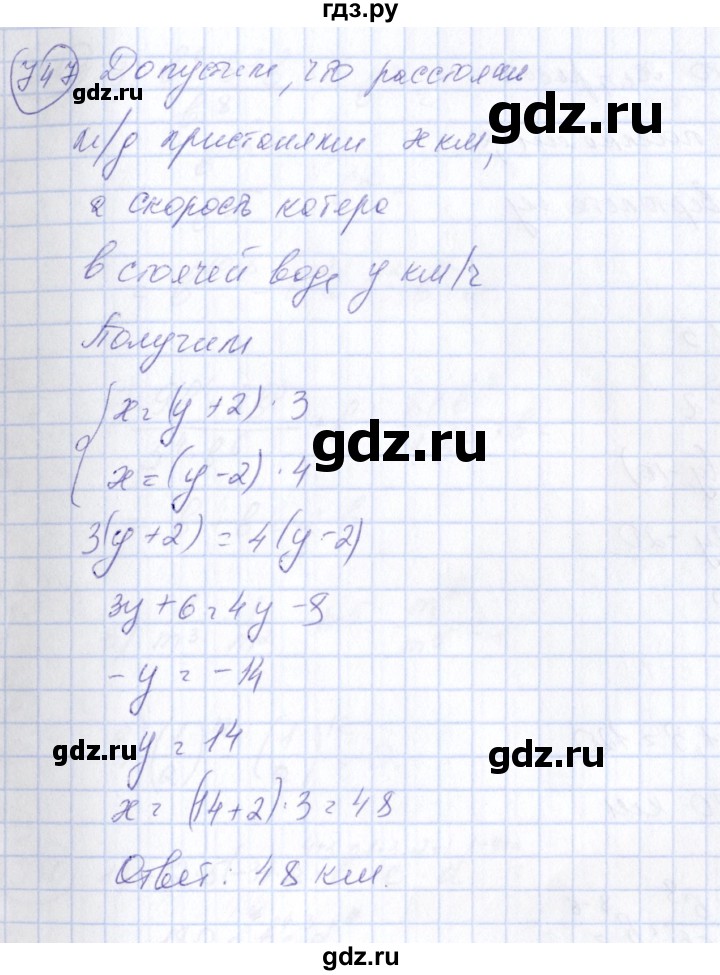 гдз.ру
747 Допустим, что расстояни
gdz.ru gdz.ru
м/д пристанями x км,
а скорость катера
в стоячей воде y км/ч
Получим
x = (y + 2) · 3
gdz.ru
x = (y - 2) · 4
3(y + 2) = 4(y - 2)
3y + 6 = 4y - 8
- y = - 14
y = 14
gdz.ru gdz.ru
x = (14 + 2) · 3 = 48
Ответ: 48 км.
gdz.ru